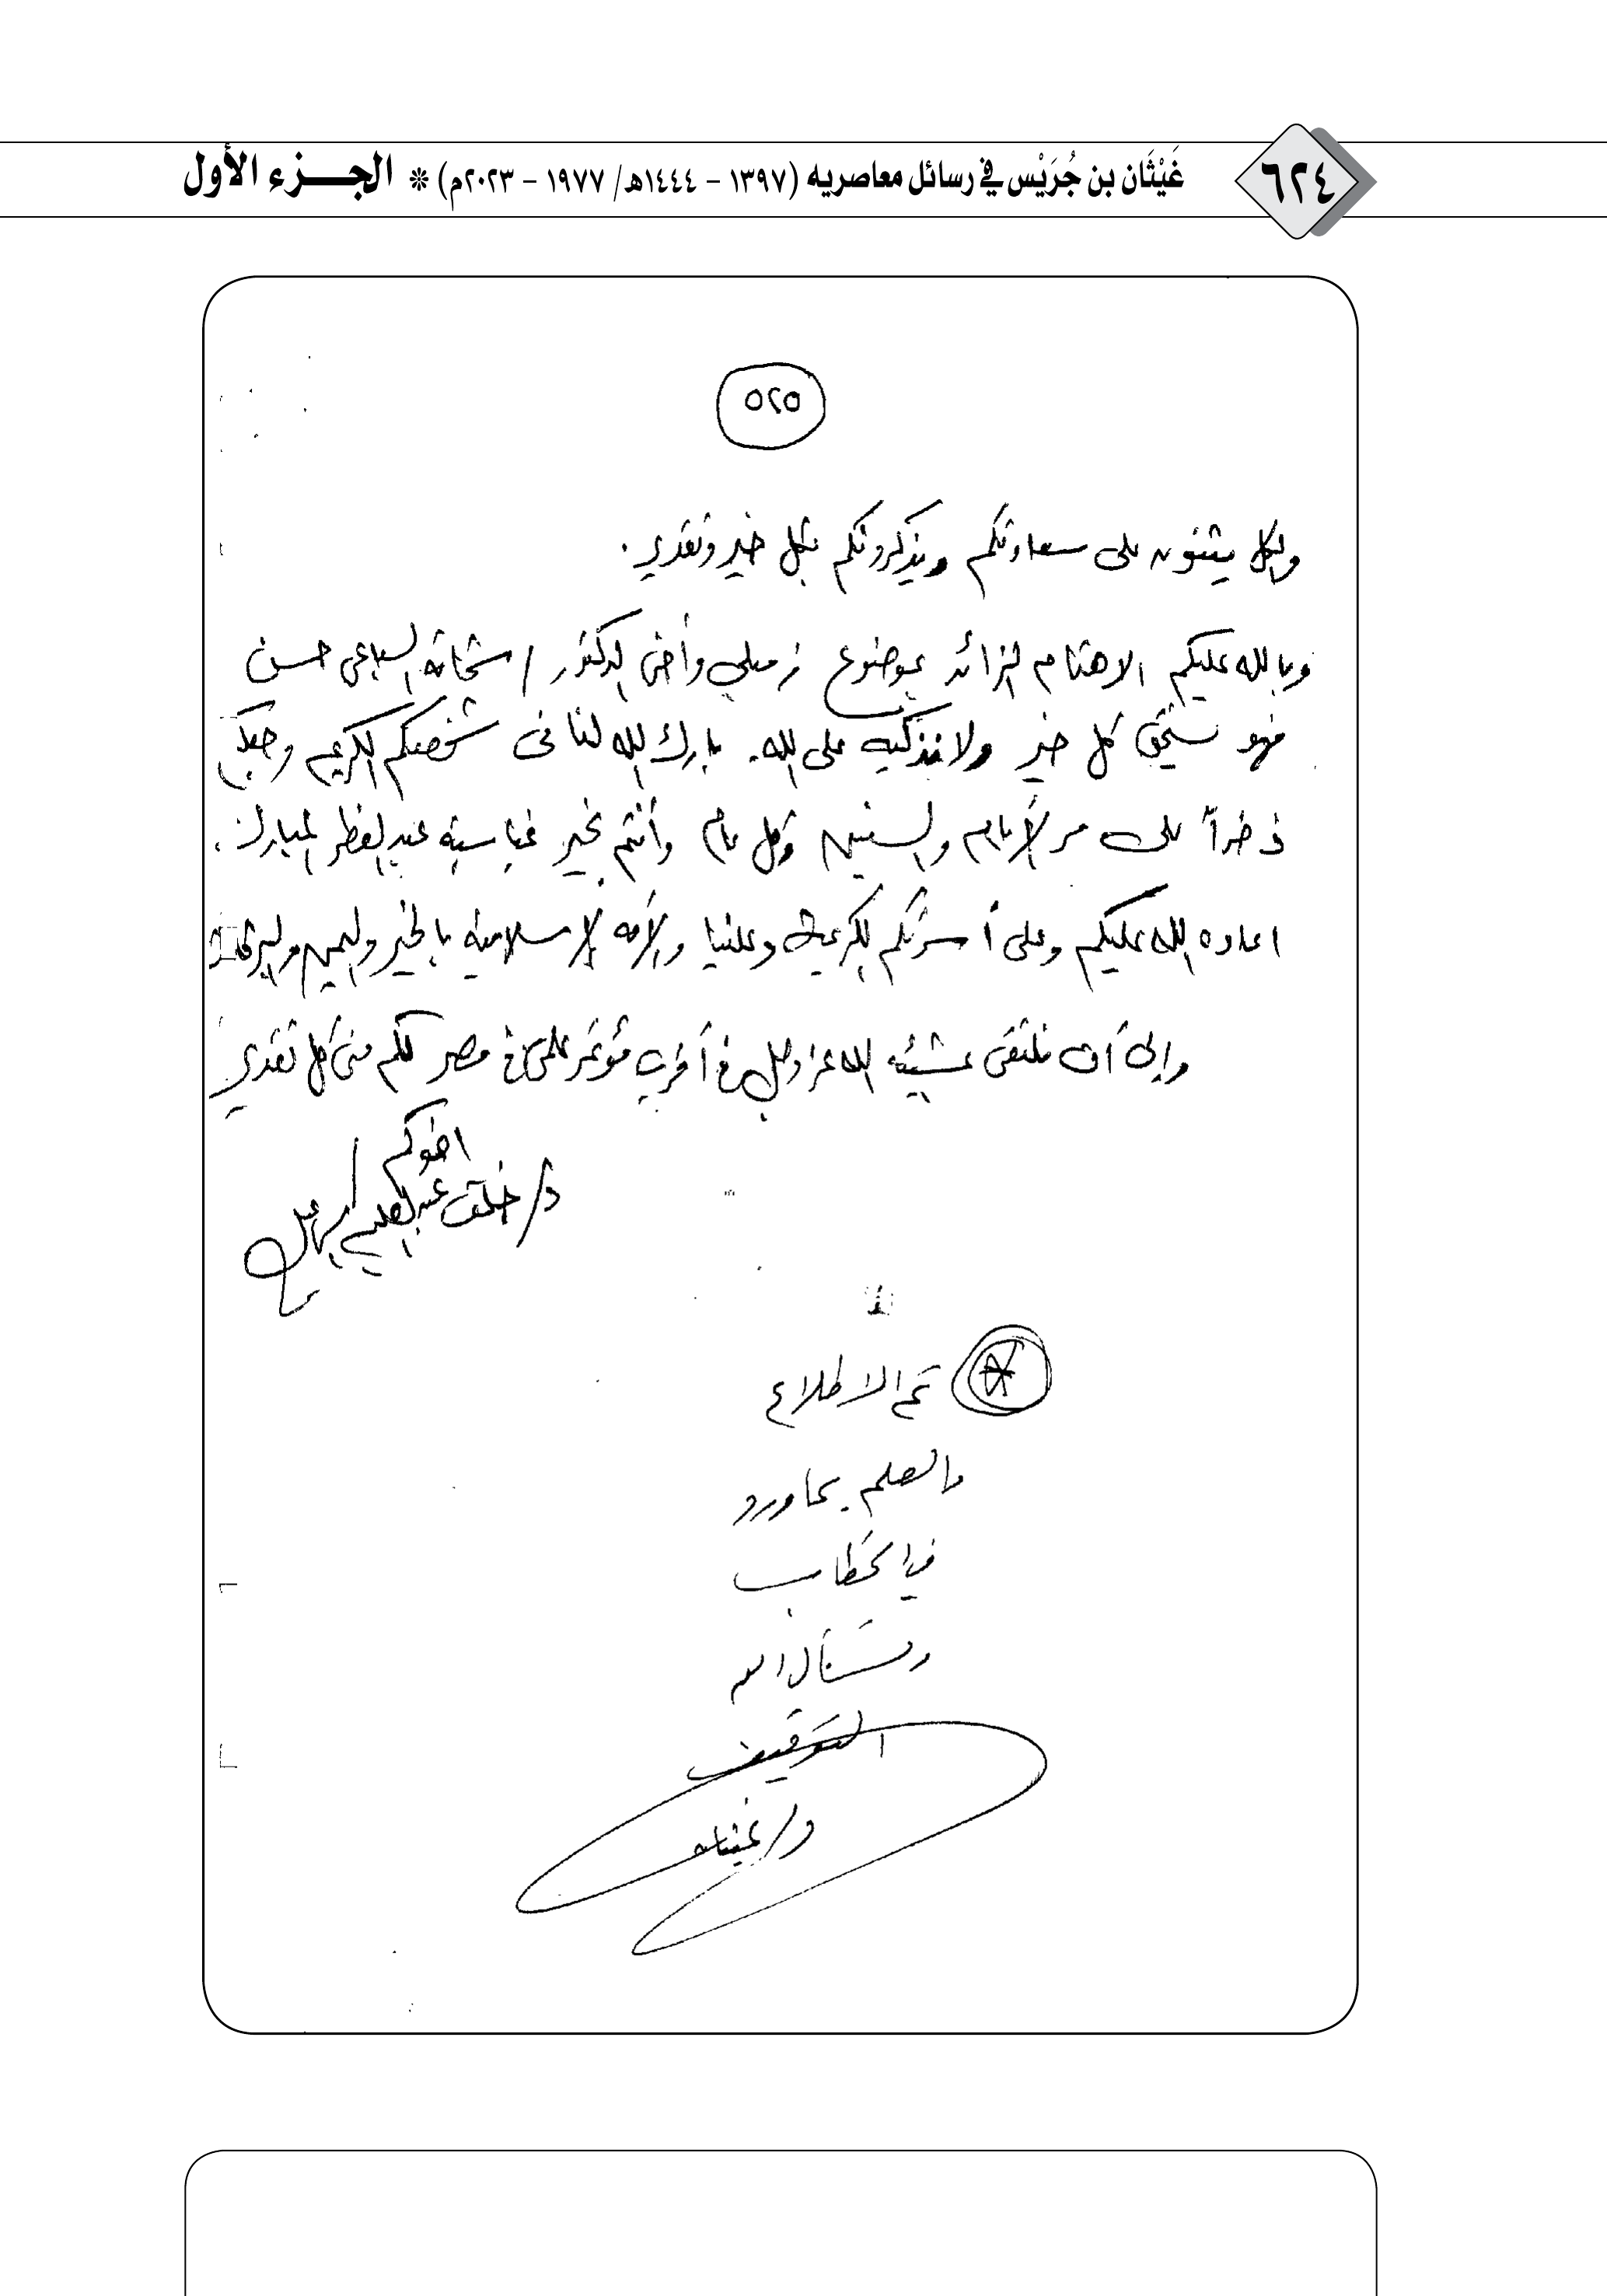 ٦٢٤
غَيْثَان بن جُرَيْس في رسائل معاصريه (١٣٩٧ - ١٤٤٤هـ/ ١٩٧٧ - ٢٠٢٣م) * الجـزء الأول
٥٢٥
والكل يثنون على سعادتكم ويذكرونكم بكل خير وتقدير.
وبالله عليكم الاهتمام الزائد بموضوع زميلي وأخى الدكتور / شحاته السباعى حسن
فهو يستحق كل خير ولا نزكيه على الله. بارك الله لنا فى شخصكم الكريم وجعلكم
ذخراً على مر الأيام والسنين وكل عام وأنتم بخير بمناسبة عيد الفطر المبارك.
اعاده الله عليكم وعلى أسرتكم الكريمة وعلينا والأمه الإسلامية بالخير واليمن والبركات
وإلى أن نلتقى بمشيئة الله عز وجل فى أقرب مؤتمر علمى فى مصر لكم منى كل تقدير
اخوكم
د/ خلف عبد العظيم
تم الاطلاع
والعلم بما ورد
في الخطاب
ونسأل الله
التوفيق
د/ غيثان